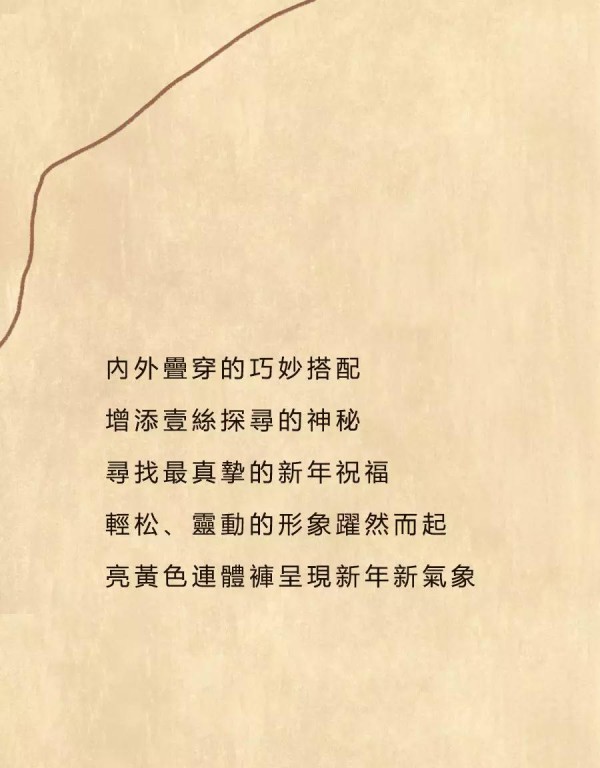 內外疊穿的巧妙搭配
增添壹絲探尋的神秘
尋找最真摯的新年祝福
輕松、靈動的形象躍然而起
亮黃色連體褲呈現新年新氣象